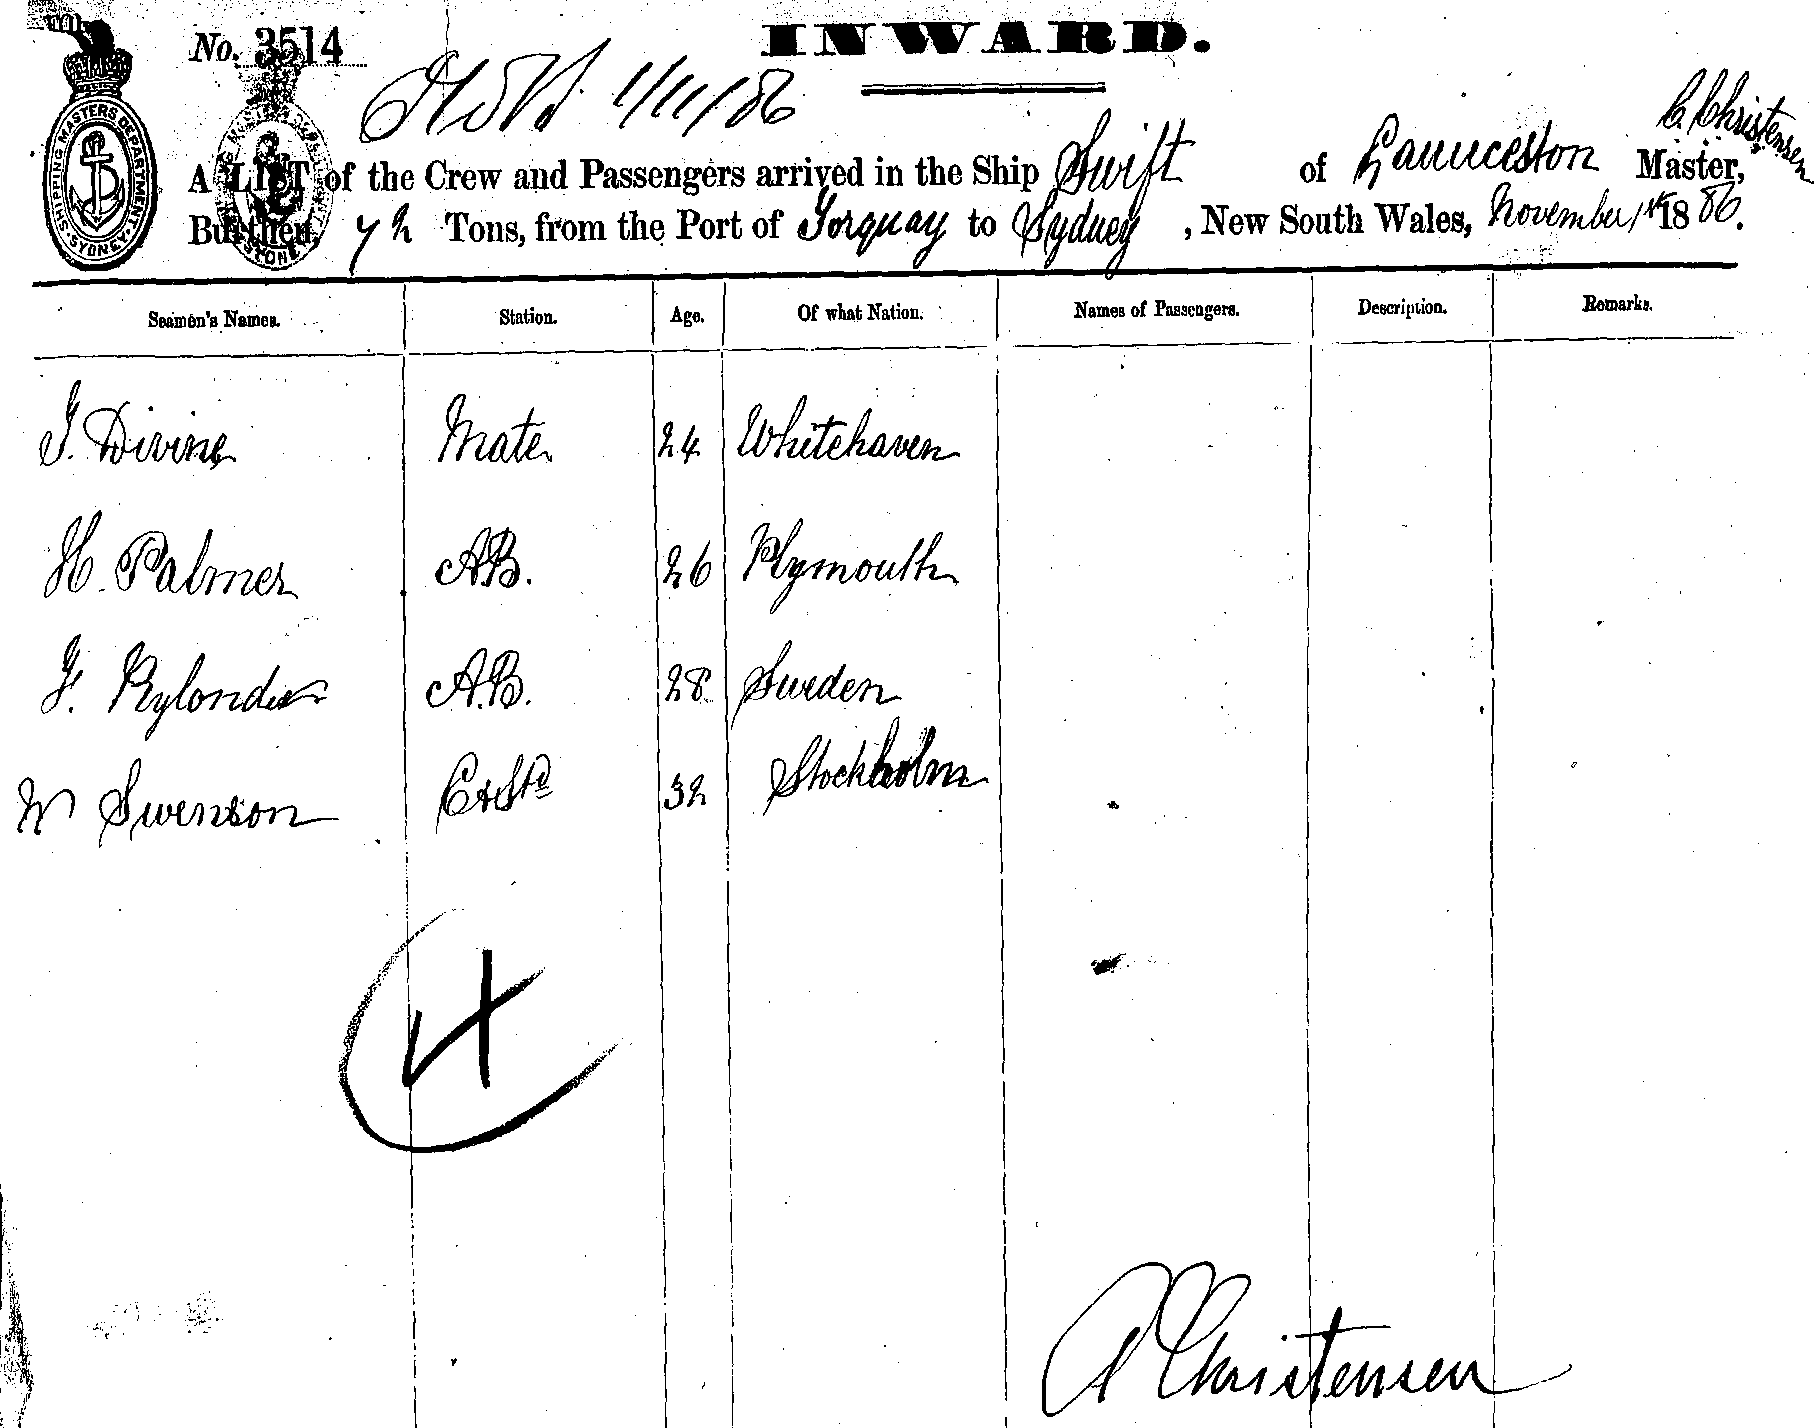 No. 3514
INWARD.
1/11/86
C. Christensen
A LIST of the Crew and Passengers arrived in the Ship Swift of Launceston Master,
Burthen, 72 Tons, from the Port of Torquay to Sydney, New South Wales, November 1st 1886.
SHIPPING MASTERS DEPARTMENT SYDNEY
Seamen's Names. Station. Age. Of what Nation. Names of Passengers. Description. Remarks.
J. Divine Mate 24 Whitehaven
H. Palmer A.B. 26 Plymouth
F. Rylander A.B. 28 Sweden
W Swenson C & Std 32 Stockholm
4
C Christensen